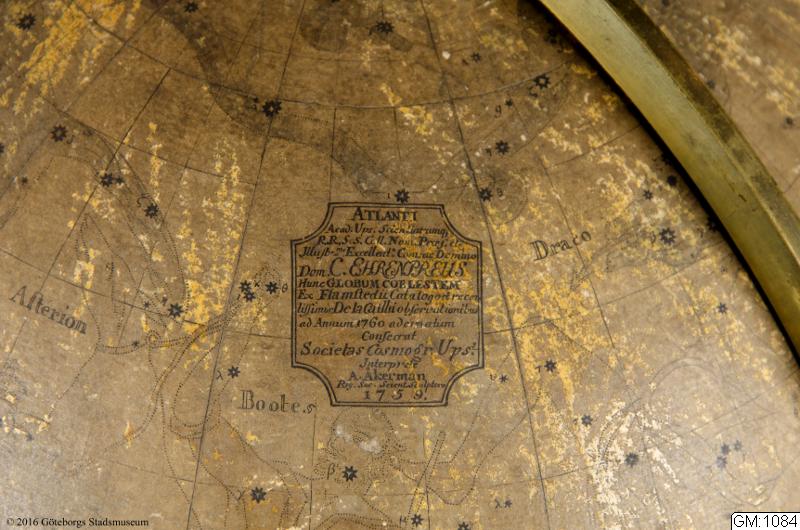 ATLANTI
Acad. Ups. Scientiarumq;
R.R.S.S. Coll. Nom. Præs. etc.
Illustr.mo Excellent.o Comiti Domino
Dom. C. EHRENPREUS
Hunc GLOBUM COELESTEM
Ex Flamstedii Catalogo et recen
tissimis De la Caillii observationibus
ad Annum 1760 adornatum
Consecrat
Societas Cosmogr: Ups:
Interprete
A. Akerman
Reg. Soc. Scient. Sculptore
1759.
Draco
Asterion
Bootes
β
GM:1084
©2016 Göteborgs Stadsmuseum